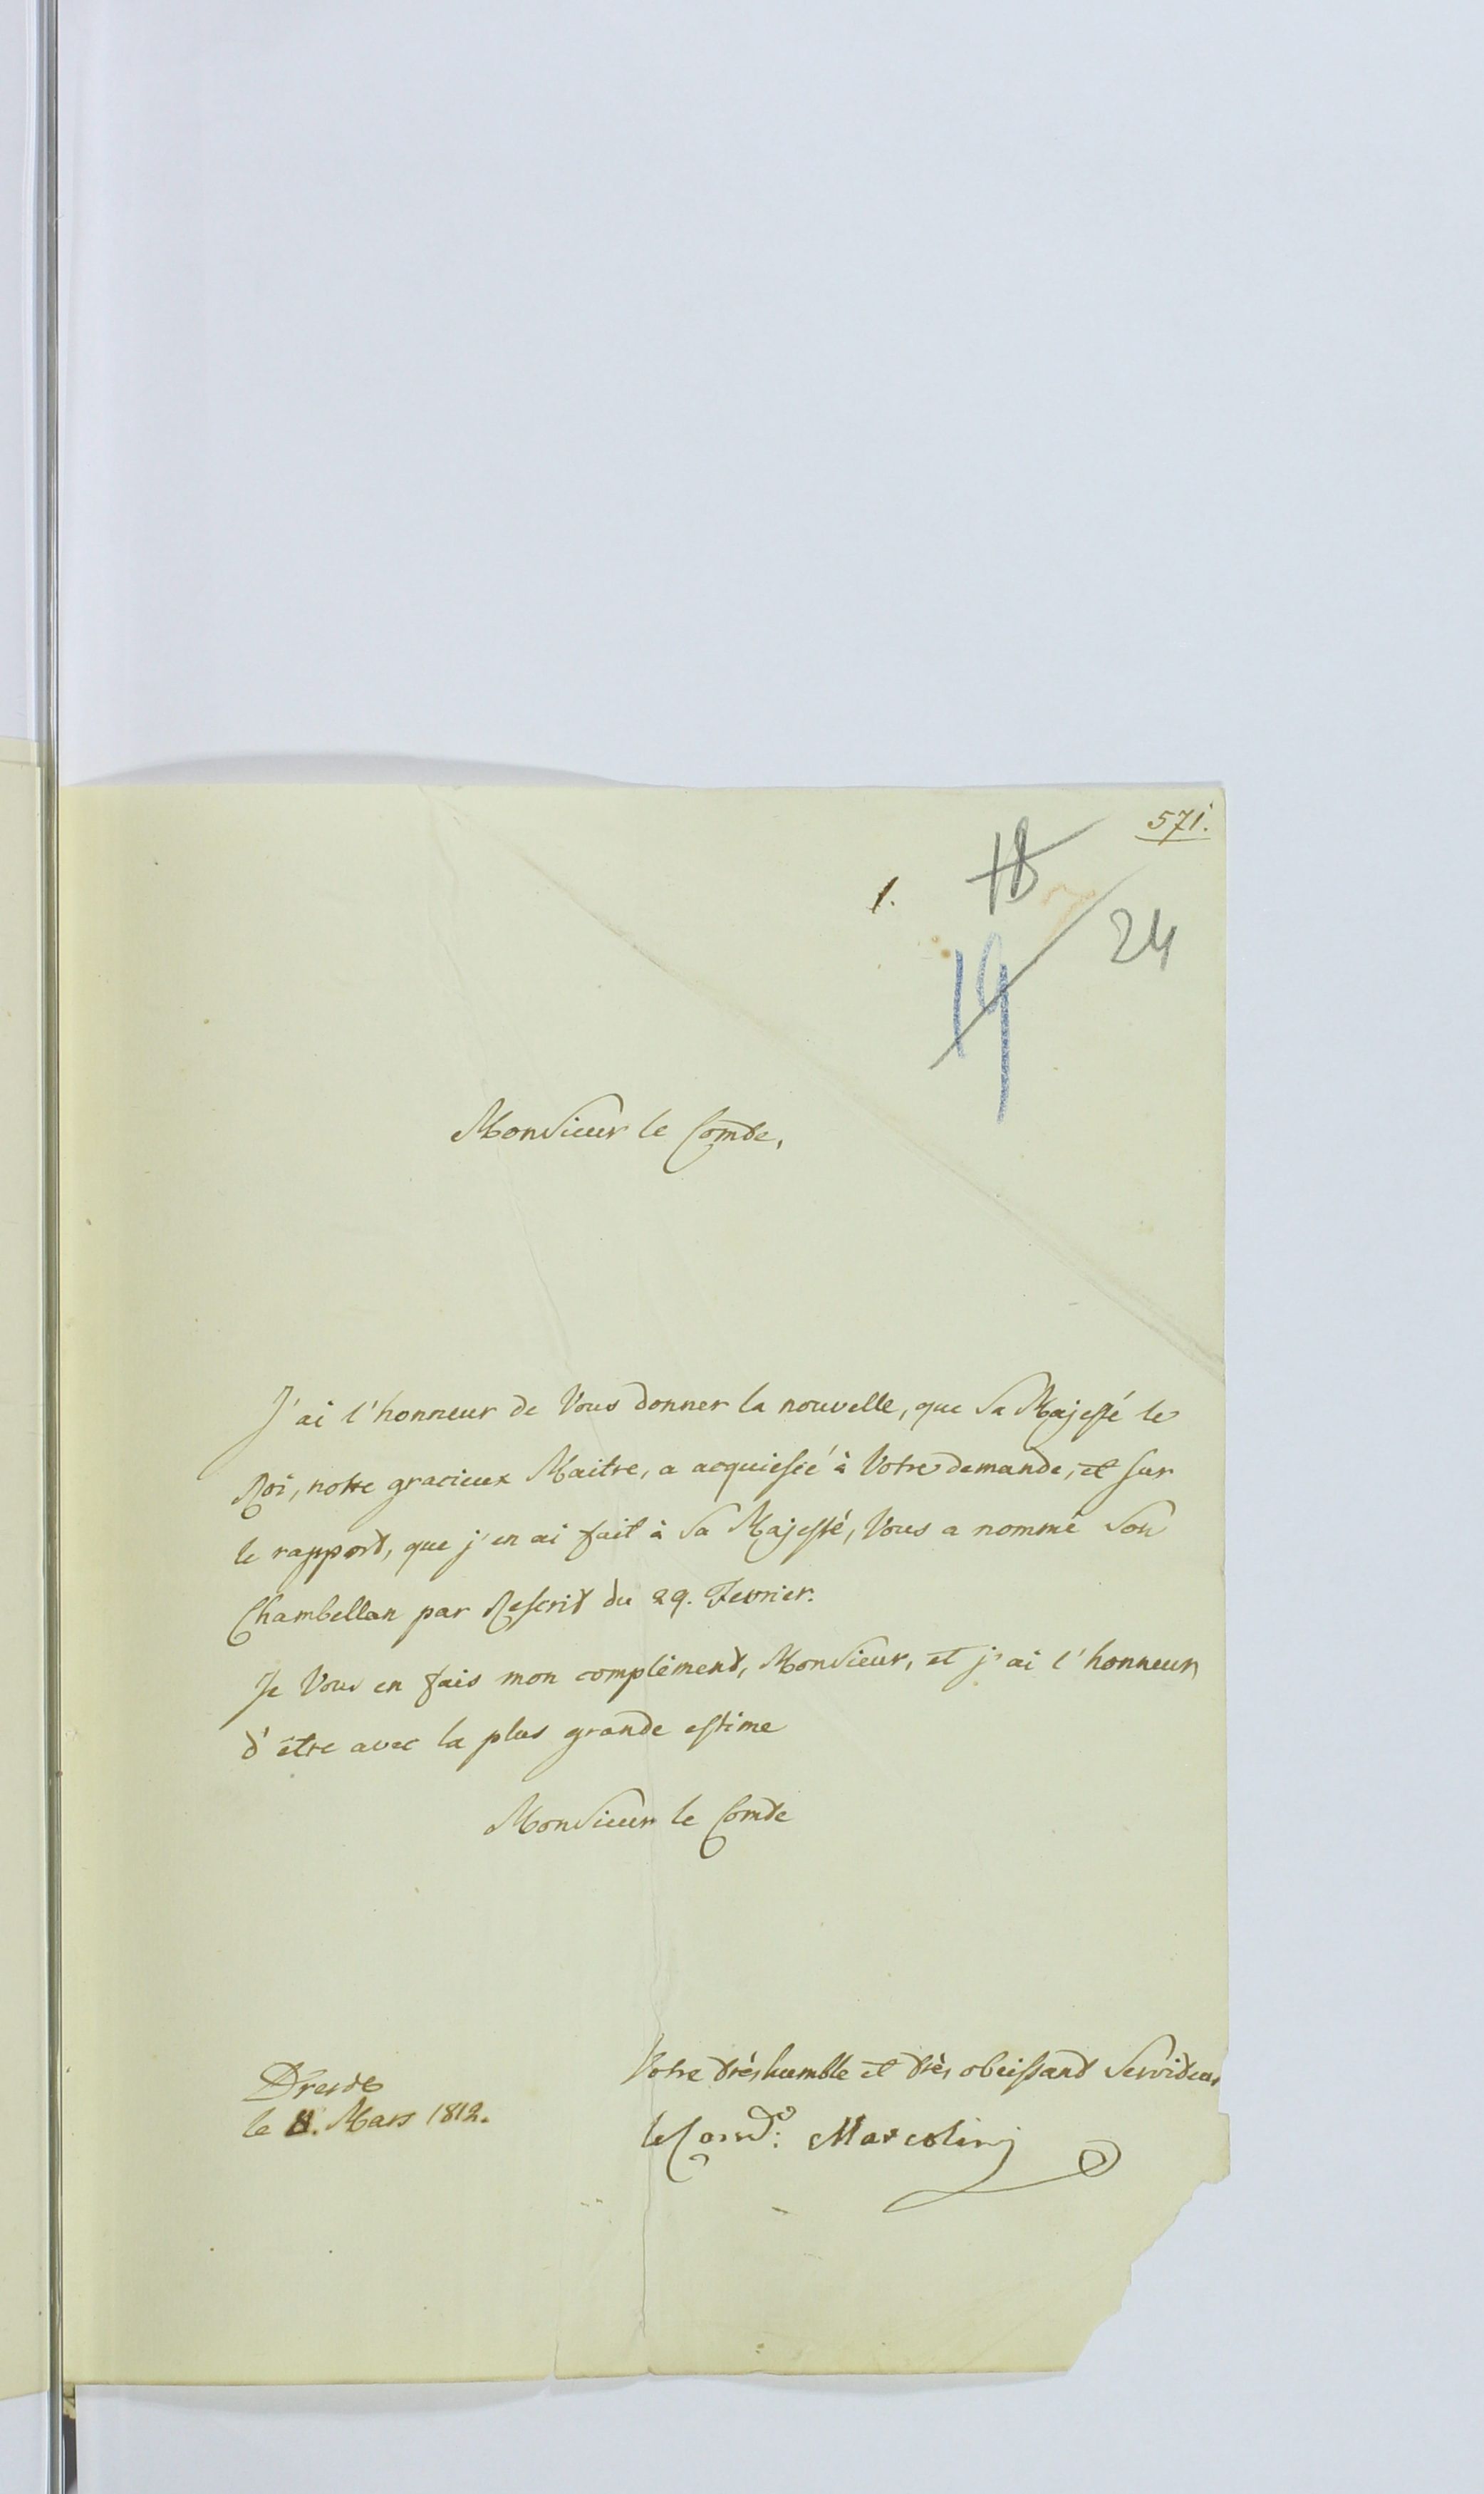 571.
1.
18
24
19
Monsieur le Comte,
J'ai l'honneur de Vous donner la nouvelle, que Sa Majesté le
Roi, notre gracieux Maitre, a acquiescé à Votre demande, et sur
le rapport, que j'en ai fait à Sa Majesté, Vous a nommé Son
Chambellan par Rescrit du 29. Fevrier.
Je Vous en fais mon complément, Monsieur, et j'ai l'honneur
d'être avec la plus grande estime
Monsieur le Comte
Votre très humble et très obeissant Serviteur
Dresde
le Comte Marcolini
le 8. Mars 1812.